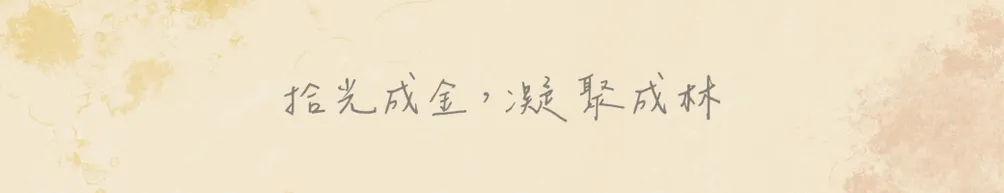 拾光成金，凝聚成林